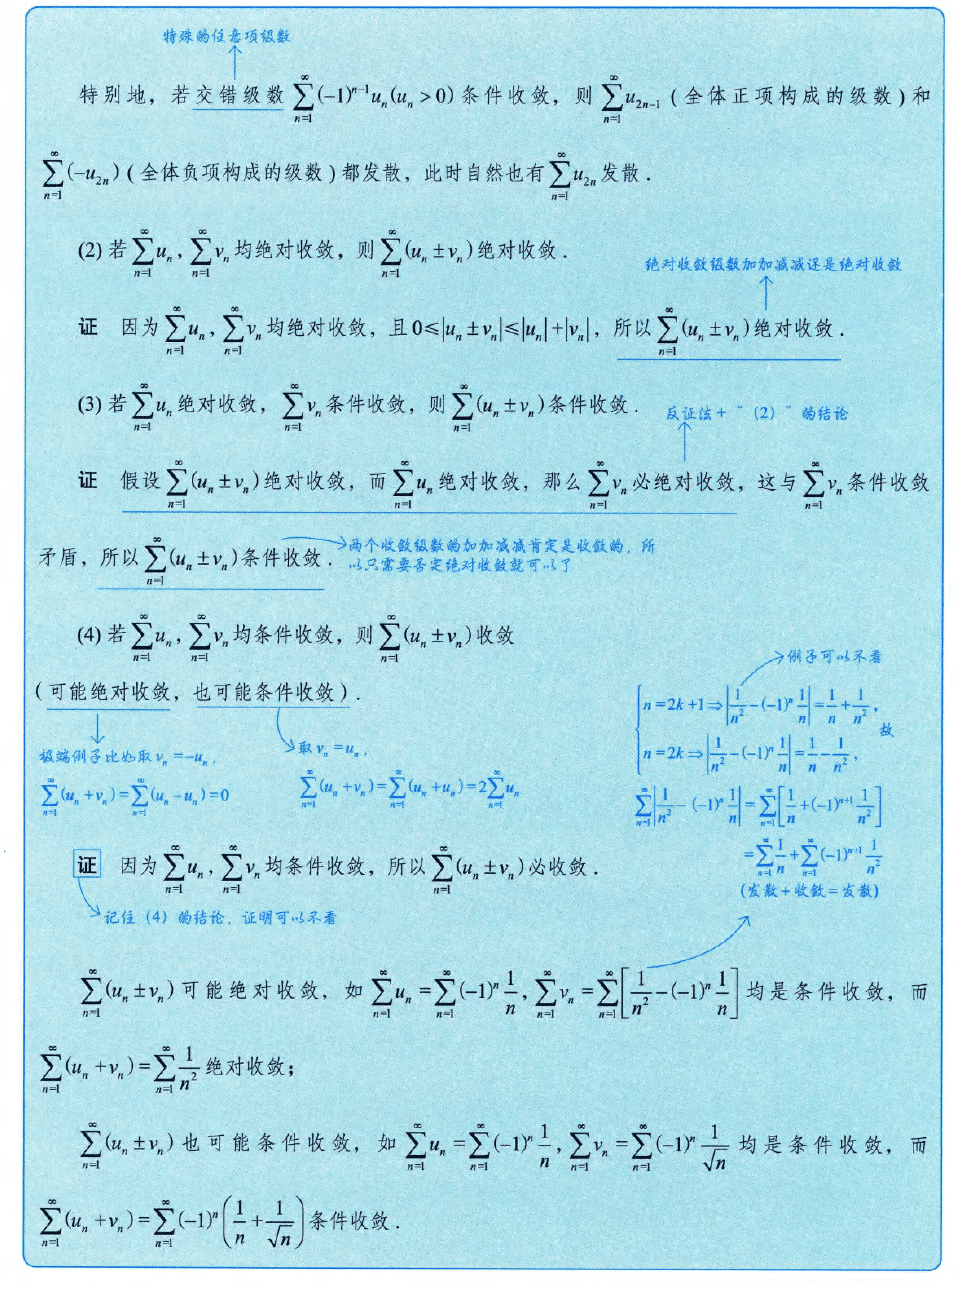 特殊的任意项级数
特别地，若交错级数 $\sum_{n=1}^{\infty}(-1)^{n-1}u_n(u_n>0)$ 条件收敛，则 $\sum_{n=1}^{\infty}u_{2n-1}$ (全体正项构成的级数)和
$\sum_{n=1}^{\infty}(-u_{2n})$ (全体负项构成的级数)都发散，此时自然也有 $\sum_{n=1}^{\infty}u_{2n}$ 发散.
(2) 若 $\sum_{n=1}^{\infty}u_n$, $\sum_{n=1}^{\infty}v_n$ 均绝对收敛，则 $\sum_{n=1}^{\infty}(u_n\pm v_n)$ 绝对收敛.
绝对收敛级数加加减减还是绝对收敛
证 因为 $\sum_{n=1}^{\infty}u_n$, $\sum_{n=1}^{\infty}v_n$ 均绝对收敛，且 $0\leq|u_n\pm v_n|\leq|u_n|+|v_n|$，所以 $\sum_{n=1}^{\infty}(u_n\pm v_n)$ 绝对收敛.
(3) 若 $\sum_{n=1}^{\infty}u_n$ 绝对收敛，$\sum_{n=1}^{\infty}v_n$ 条件收敛，则 $\sum_{n=1}^{\infty}(u_n\pm v_n)$ 条件收敛.
反证法+“(2)”的结论
证 假设 $\sum_{n=1}^{\infty}(u_n\pm v_n)$ 绝对收敛，而 $\sum_{n=1}^{\infty}u_n$ 绝对收敛，那么 $\sum_{n=1}^{\infty}v_n$ 必绝对收敛，这与 $\sum_{n=1}^{\infty}v_n$ 条件收敛
矛盾，所以 $\sum_{n=1}^{\infty}(u_n\pm v_n)$ 条件收敛.
两个收敛级数的加加减减肯定是收敛的，所
以只需要否定绝对收敛就可以了
(4) 若 $\sum_{n=1}^{\infty}u_n$, $\sum_{n=1}^{\infty}v_n$ 均条件收敛，则 $\sum_{n=1}^{\infty}(u_n\pm v_n)$ 收敛
(可能绝对收敛，也可能条件收敛).
极端例子比如取 $v_n=-u_n$,
$\sum_{n=1}^{\infty}(u_n+v_n)=\sum_{n=1}^{\infty}(u_n-u_n)=0$
取 $v_n=u_n$,
$\sum_{n=1}^{\infty}(u_n+v_n)=\sum_{n=1}^{\infty}(u_n+u_n)=2\sum_{n=1}^{\infty}u_n$
例子可以不看
$n=2k+1\Rightarrow\left|\frac{1}{n^2}-(-1)^n\frac{1}{n}\right|=\frac{1}{n}+\frac{1}{n^2}$,
故
$n=2k\Rightarrow\left|\frac{1}{n^2}-(-1)^n\frac{1}{n}\right|=\frac{1}{n}-\frac{1}{n^2}$,
$\sum_{n=1}^{\infty}\left|\frac{1}{n^2}-(-1)^n\frac{1}{n}\right|=\sum_{n=1}^{\infty}\left[\frac{1}{n}+(-1)^{n+1}\frac{1}{n^2}\right]$
$=\sum_{n=1}^{\infty}\frac{1}{n}+\sum_{n=1}^{\infty}(-1)^{n+1}\frac{1}{n^2}$
(发散+收敛=发散)
证 因为 $\sum_{n=1}^{\infty}u_n$, $\sum_{n=1}^{\infty}v_n$ 均条件收敛，所以 $\sum_{n=1}^{\infty}(u_n\pm v_n)$ 必收敛.
记住(4)的结论，证明可以不看
$\sum_{n=1}^{\infty}(u_n\pm v_n)$ 可能绝对收敛，如 $\sum_{n=1}^{\infty}u_n=\sum_{n=1}^{\infty}(-1)^n\frac{1}{n}$, $\sum_{n=1}^{\infty}v_n=\sum_{n=1}^{\infty}\left[\frac{1}{n^2}-(-1)^n\frac{1}{n}\right]$ 均是条件收敛，而
$\sum_{n=1}^{\infty}(u_n+v_n)=\sum_{n=1}^{\infty}\frac{1}{n^2}$ 绝对收敛；
$\sum_{n=1}^{\infty}(u_n\pm v_n)$ 也可能条件收敛，如 $\sum_{n=1}^{\infty}u_n=\sum_{n=1}^{\infty}(-1)^n\frac{1}{n}$, $\sum_{n=1}^{\infty}v_n=\sum_{n=1}^{\infty}(-1)^n\frac{1}{\sqrt{n}}$ 均是条件收敛，而
$\sum_{n=1}^{\infty}(u_n+v_n)=\sum_{n=1}^{\infty}(-1)^n\left(\frac{1}{n}+\frac{1}{\sqrt{n}}\right)$ 条件收敛.